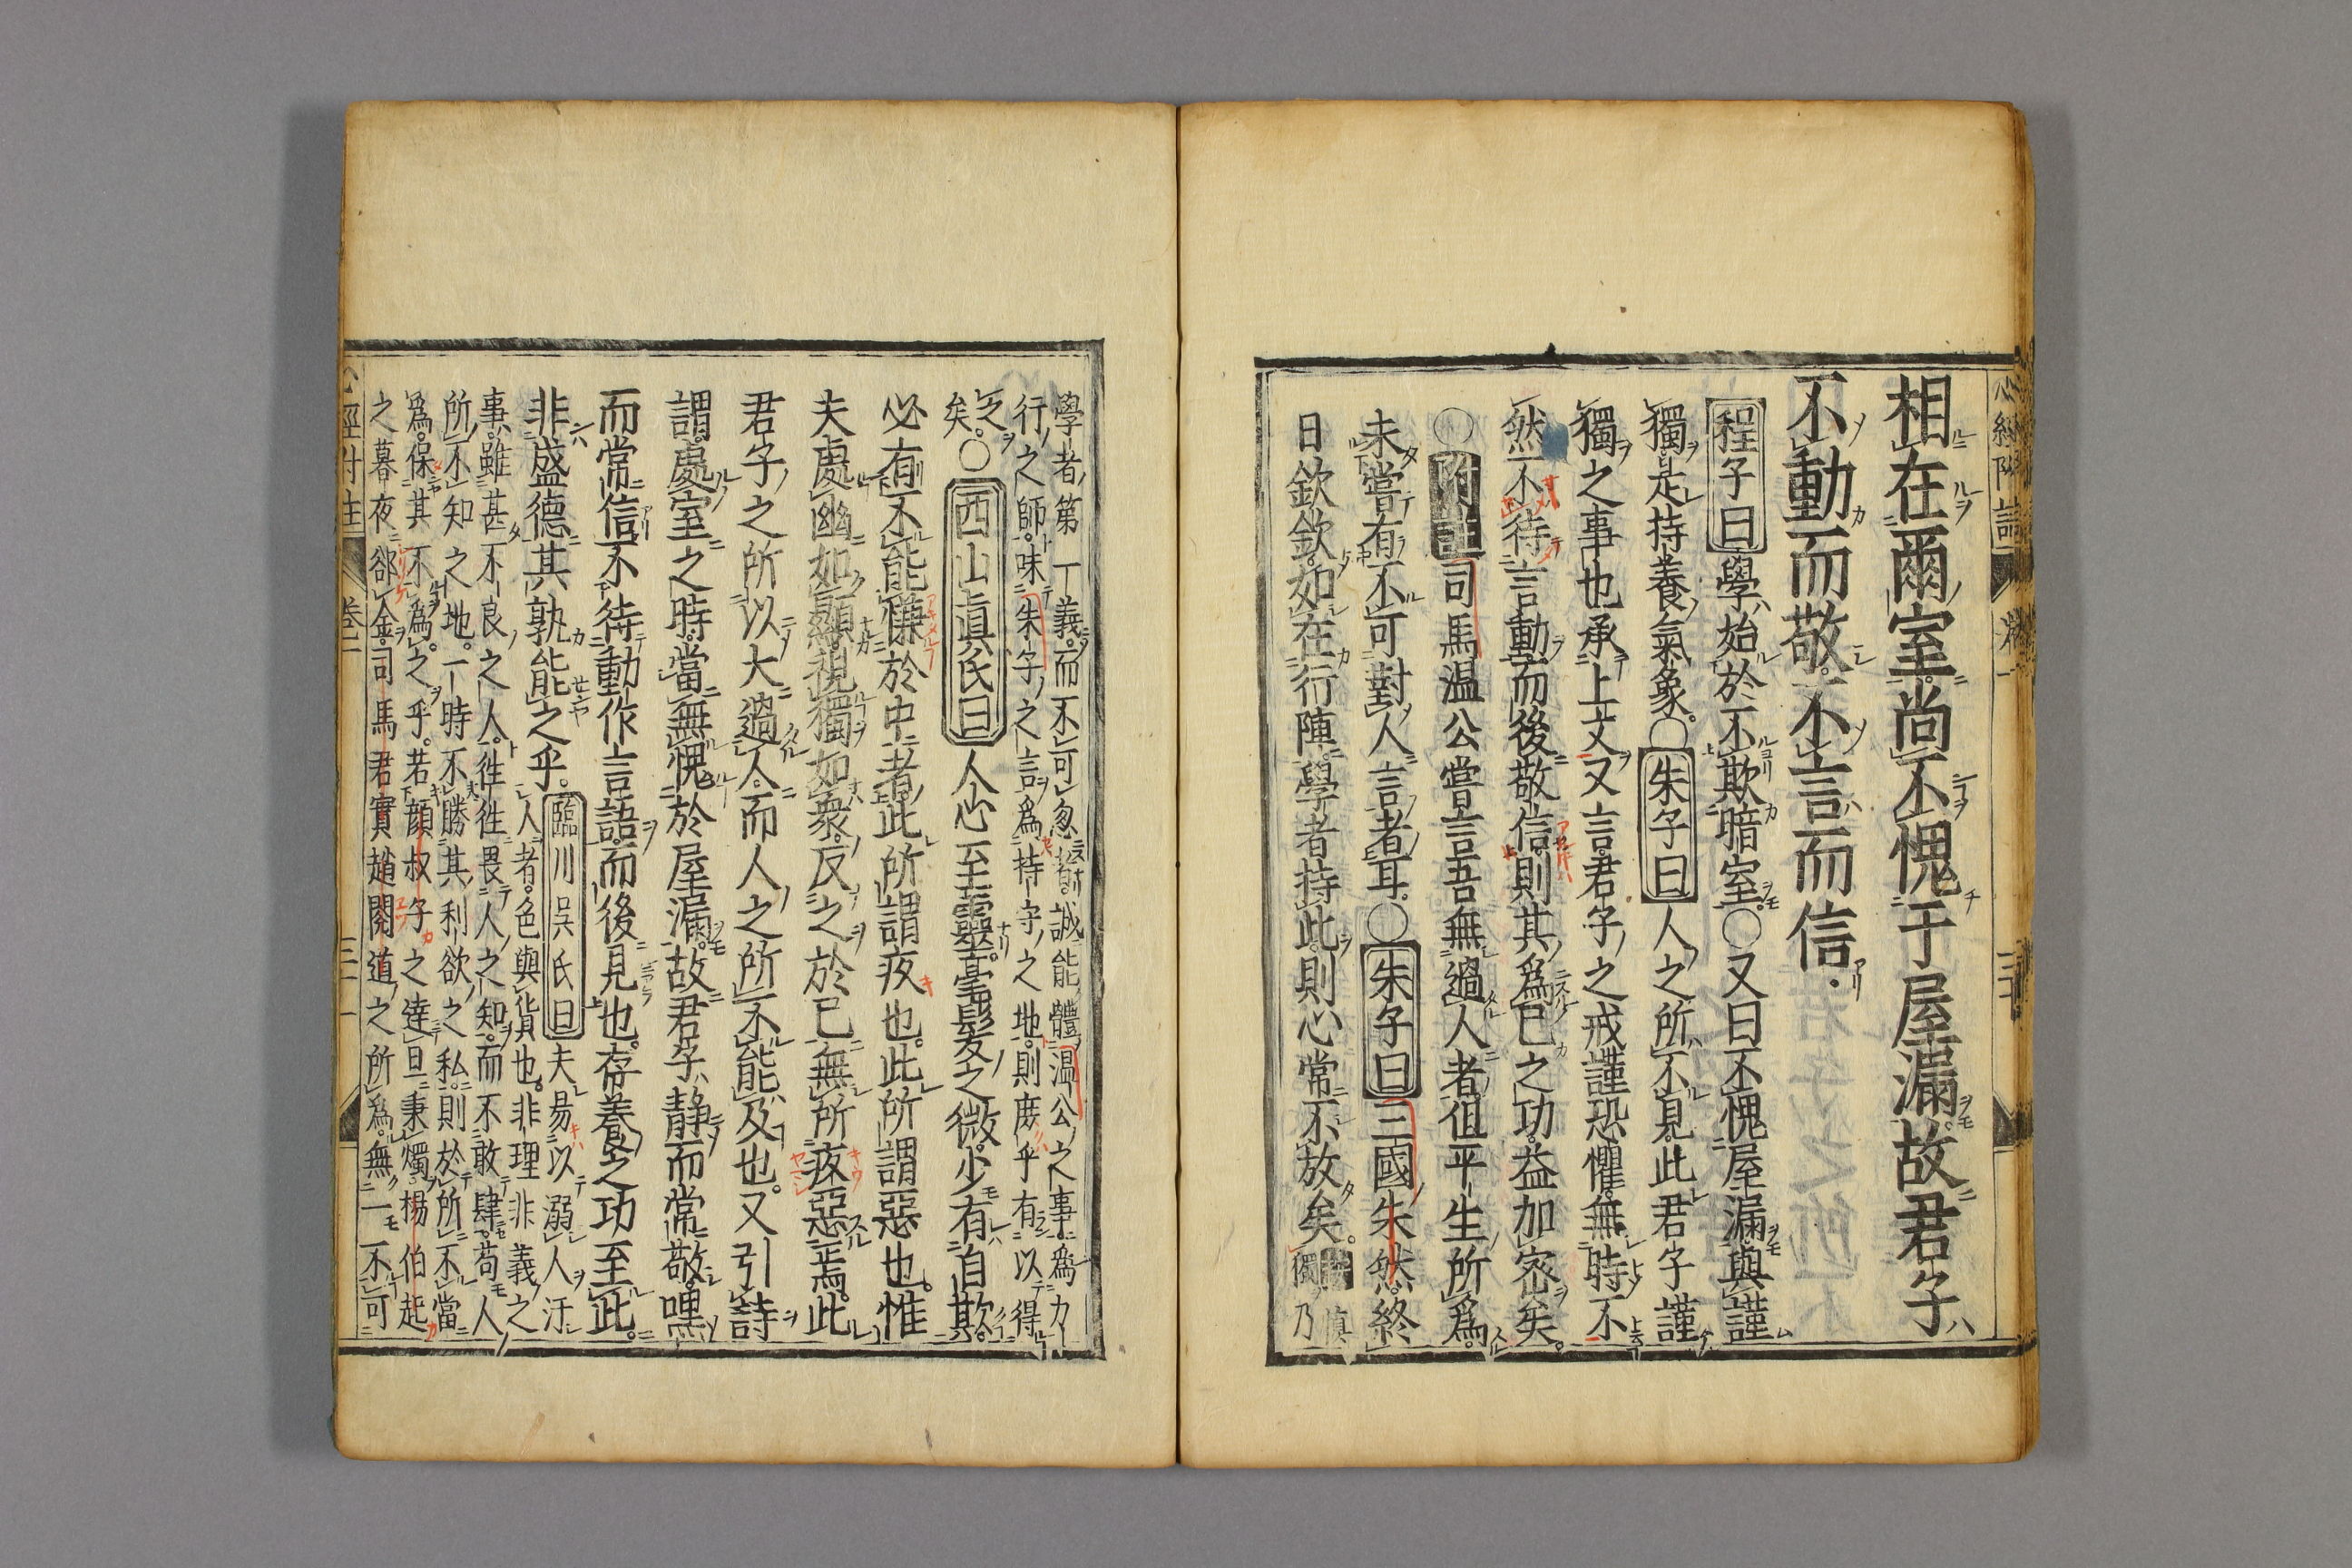 心經附註 卷一 三十
相在爾室尚不愧于屋漏故君子
不動而敬不言而信
程子曰學始於不欺暗室○又曰不愧屋漏與謹
獨是持養氣象○朱子曰人之所不見此君子謹
獨之事也承上文又言君子之戒謹恐懼無時不
然不待言動而後敬信則其爲已之功益加密矣
○附註司馬温公嘗言吾無過人者但平生所爲
未嘗有不可對人言者耳○朱子曰三國朱然終
日欽欽如在行陣學者持此則心常不放矣
按愼
獨乃
學者第一義而不可忽者誠能體温公之事爲力
行之師味朱子之言爲持守之地則庶乎有以得
之
矣○西山眞氏曰人心至靈毫髮之微少有自欺
必有不能慊於中者此所謂疚也此所謂惡也惟
夫處幽如顯視獨如衆反之於已無所疚惡焉此
君子之所以大過人而人之所不能及也又引詩
謂處室之時當無愧於屋漏故君子靜而常敬嘿
而常信不待動作言語而後見也存養之功至此
非盛德其孰能之乎臨川吳氏曰夫易以溺人汙
人者色與貨也非理非義之
事雖甚不良之人徃徃畏人之知而不敢肆苟人
所不知之地一時不勝其利欲之私則於所不當
爲保其不爲之乎若顔叔子之達旦秉燭楊伯起
之暮夜郤金司馬君實趙閱道之所爲無一不可
心經附註 卷一 三十一